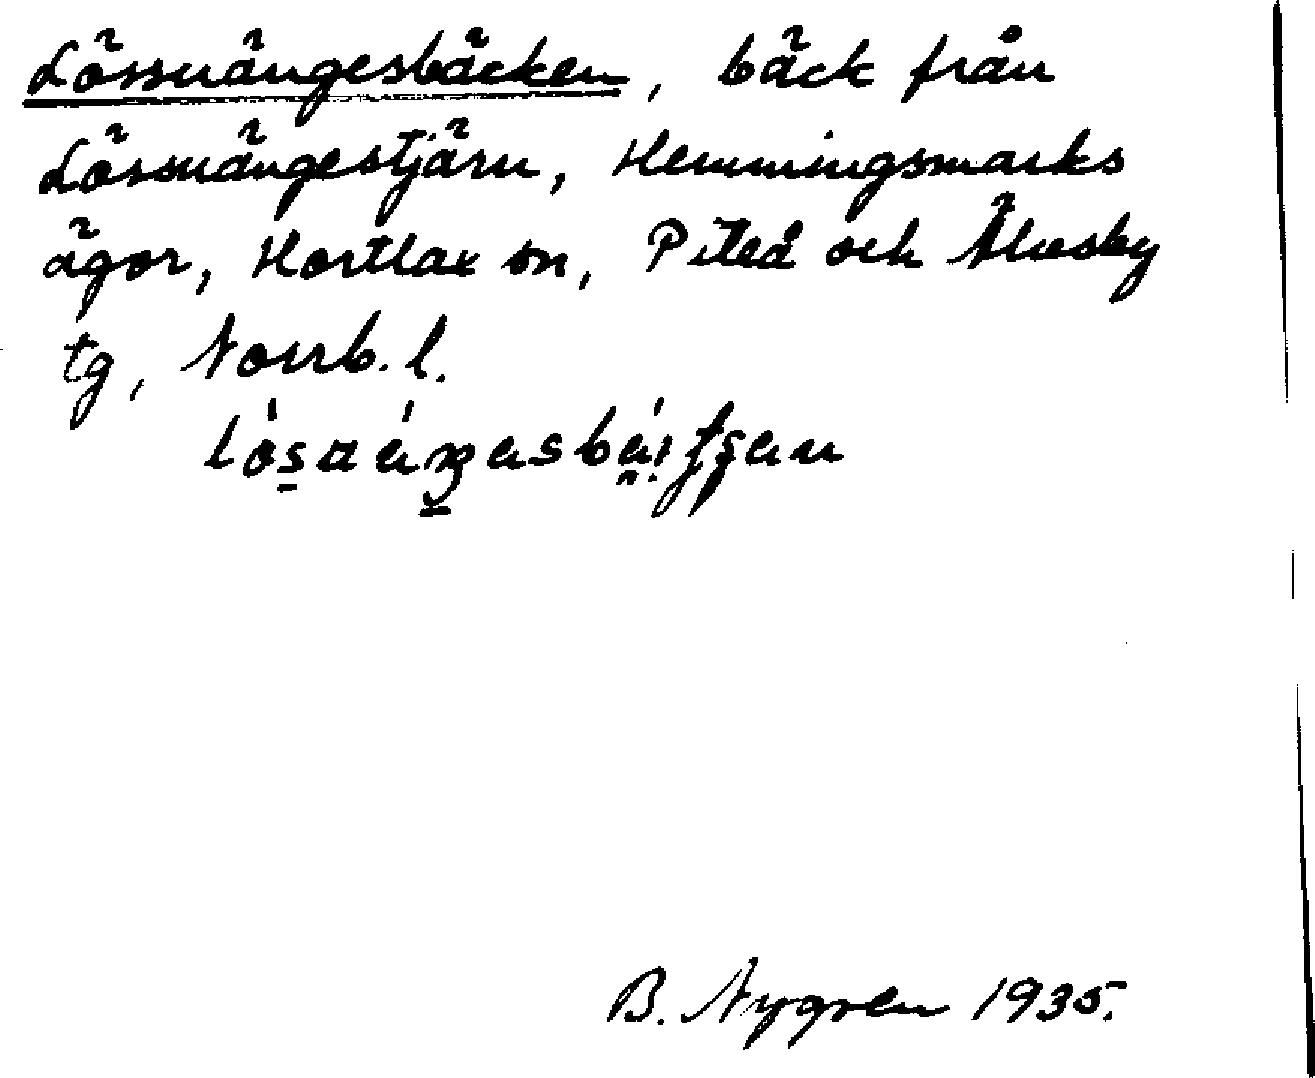 Lössnängesbäcken, bäck från
Lössnängestjärn, Hemmingsmarks
ägor, Hortlax sn, Piteå och Älvsby
tg, Norrb. l.
B. Nygren 1935.